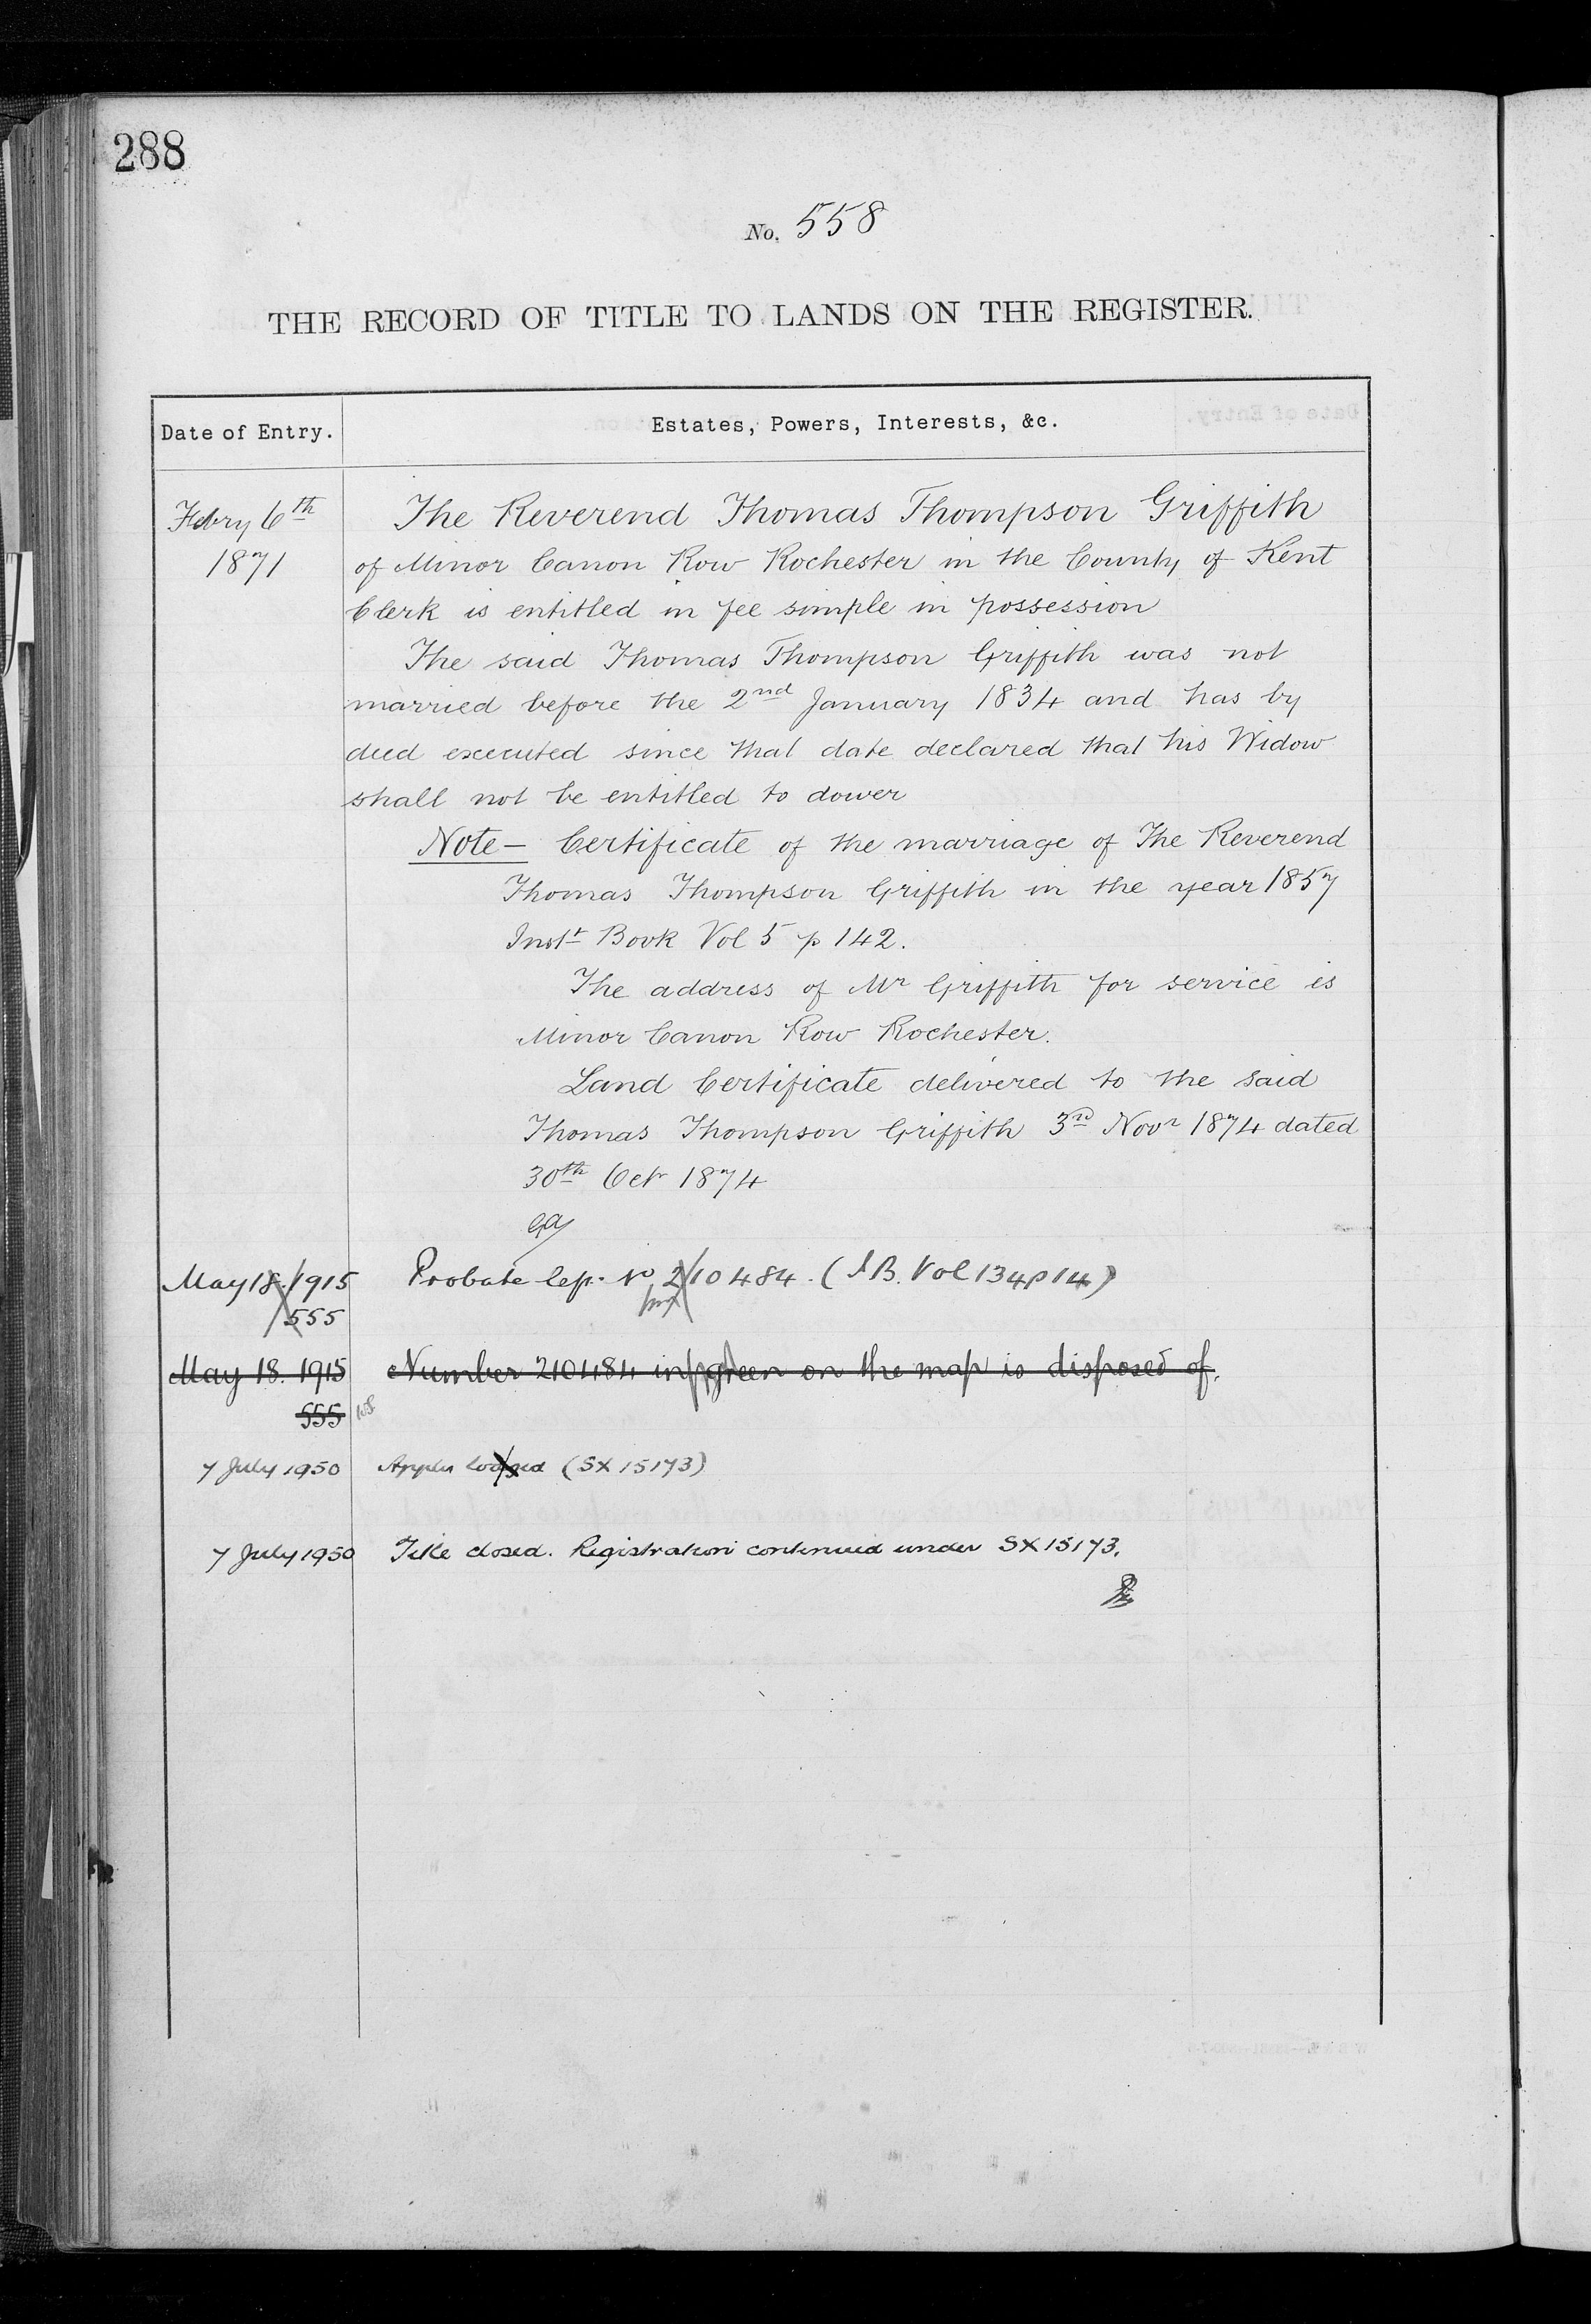 288
No. 558
THE RECORD OF TITLE TO LANDS ON THE REGISTER.
Date of Entry.
Estates, Powers, Interests, &c.
Febry 6th
1871
The Reverend Thomas Thompson Griffith
of Minor Canon Row Rochester in the County of Kent
Clerk is entitled in fee simple in possession
The said Thomas Thompson Griffith was not
married before the 2nd January 1834 and has by
deed executed since that date declared that his Widow
shall not be entitled to dower
Note – Certificate of the marriage of The Reverend
Thomas Thompson Griffith in the year 1857
Inst Book Vol 5 p 142.
The address of Mr Griffith for service is
Minor Canon Row Rochester.
Land Certificate delivered to the said
Thomas Thompson Griffith 3rd Novr 1874 dated
30th Octr 1874
May 18. 1915
555
Probate No 210484. (I.B. Vol 134 p 14)
May 18. 1915
555
Number 210484 in green on the map is disposed of.
7 July 1950
Appln lodged (SX 15173)
7 July 1950
Title closed. Registration continued under SX 15173.